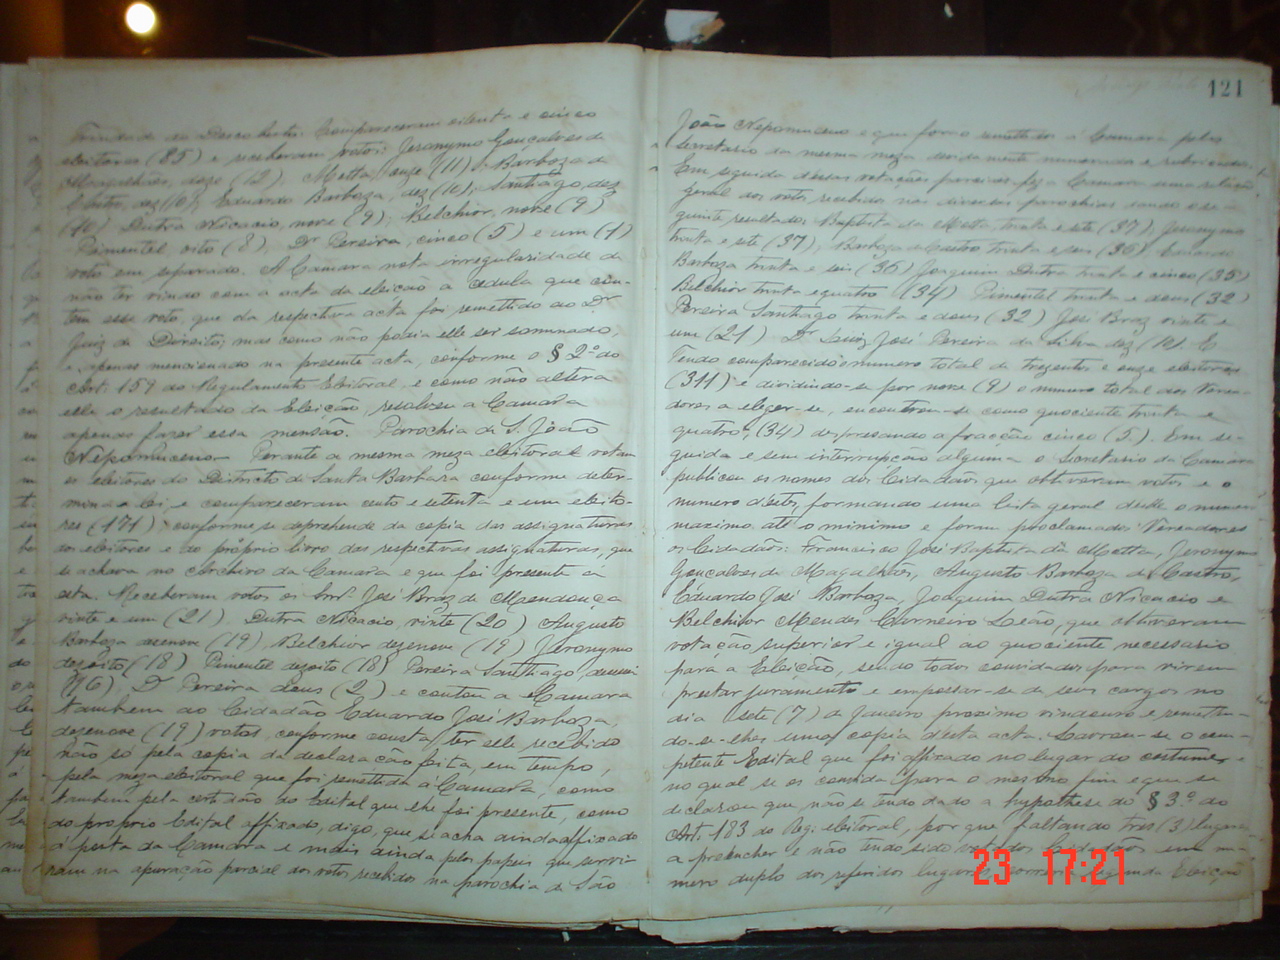 Trindade do Descoberto: Compareceram oitenta e cinco
eleitores (85) e receberam votos: Jeronymo Gonçalves de
Magalhães, doze (12), Motta, onze (11), Barboza de
Castro, dez (10), Eduardo Barboza, dez (10), Santhiago, dez
(10) Dutra Nicacio, nove (9), Belchior, nove (9)
Pimentel oito (8), Dr Pereira, cinco (5) e um (1)
voto em separado. A Camara nota irregularidade de
não ter vindo com a acta da eleição a cedula que con-
tem esse voto, que da respectiva acta foi remettido ao Dr
Juiz de Direito; mas como não podia elle ser sommado,
e apenas mencionado na presente acta, conforme o § 2º do
Art. 157 do Regulamento Eleitoral, e como não altera
elle o resultado da Eleição, resolveu a Camara
apenas fazer essa mensão. Parochia de S. João
Nepomuceno Perante a mesma meza eleitoral votam
os eleitores do Districto de Santa Barbara conforme deter-
mina a lei, e compareceram cento e setenta e um eleito-
res (171) conforme se deprehende da copia das assignaturas
dos eleitores e do próprio livro das respectivas assignaturas, que
se achava no Archivo da Camara e que foi presente á
esta. Receberam votos os Snrs José Braz de Mendonça
vinte e um (21) Dutra Nicacio, vinte (20) Augusto
Barboza desenove (19) Belchior desenove (19) Jeronymo
dezoito (18) Pimentel dezoito (18) Pereira Santhiago,
(16), Dr Pereira dous (2) e contou a Camara
tambem ao Cidadão Eduardo José Barboza,
desenove (19) votos, conforme consta ter elle recebido
não só pela copia da declaração feita, em tempo,
pela meza eleitoral que foi remettida á Camara, como
tambem pela certidão do Edital que lhe foi presente, como
do proprio Edital affixado, digo, que se acha ainda affixado
á porta da Camara e mais ainda pelos papeis que servi-
ram na apuração parcial dos votos recebidos na parochia de São
121
João Nepomuceno e que forão remettidos á Camara pelo
Secretario da mesma meza devidamente numerada e rubricadas.
Em seguida dessas votações parciaes fez a Camara uma relação
geral dos votos recebidos nas diversas parochias sendo o se-
guinte resultado: Baptista da Motta, trinta e sete (37), Jeronymo
trinta e sete (37), Barboza de Castro trinta e seis (36) Eduardo
Barboza trinta e seis (36) Joaquim Dutra trinta e cinco (35)
Belchior trinta e quatro (34) Pimentel trinta e dous (32)
Pereira Santhiago trinta e dous (32) José Braz vinte e
um (21) Dr Luiz José Pereira da Silva dez (10). E
Tendo comparecido o numero total de trezentos e onze eleitores
(311) e dividindo-se por nove (9) o numero total dos Verea-
dores a eleger-se, encontrou-se como quociente trinta e
quatro, (34) despresando a fracção cinco (5). Em se-
guida e sem interrupção alguma o Secretario da Camara
publicou os nomes dos Cidadãos que obtiveram votos e o
numero destes, formando uma lista geral desde o numero
maximo até o minimo e foram proclamados Vereadores
os Cidadãos: Francisco José Baptista da Motta, Jeronymo
Gonçalves de Magalhães, Augusto Barboza de Castro,
Eduardo José Barboza, Joaquim Dutra Nicacio e
Belchior Mendes Carneiro Leão, que obtiveram
votação superior e igual ao quociente necessario
para a Eleição, sendo todos convidados para virem
prestar juramento e empossar-se de seus cargos no
dia sete (7) de Janeiro proximo vindouro e remetten-
do-se-lhes uma copia desta acta. Lavrou-se o com-
petente Edital que foi affixado no lugar do costume, e
no qual se os convida para o mesmo fim e que se
declarou que não se tendo dado a hypothese do § 3º do
Art. 183 do Reg. eleitoral, por que faltando tres (3) lugares
a prehencher e não tendo sido votados Cidadãos em nu-
mero duplo dos referidos lugares segunda Eleição
23 17:21